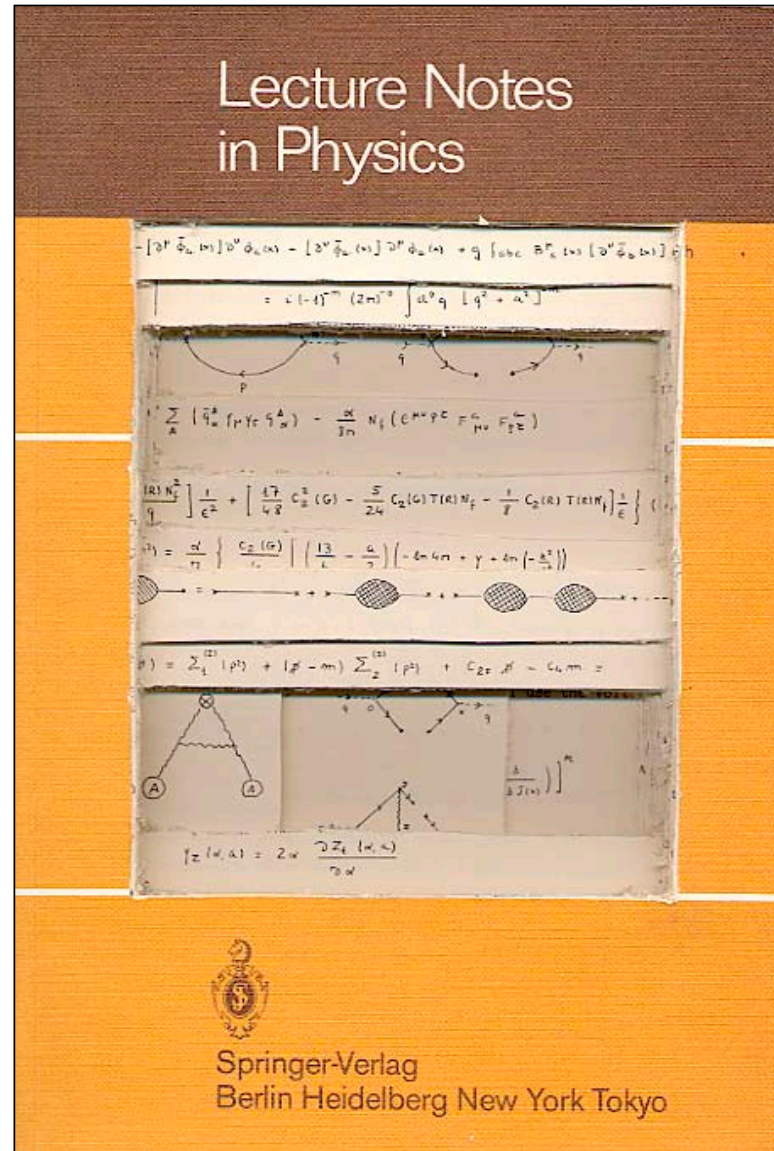 Lecture Notes
in Physics
-[∂^μ φ̄_a(x)]∂^ν φ_a(x) - [∂^ν φ̄_a(x)] ∂^μ φ_a(x) + g f_abc B^μ_c(x) [∂^ν φ̄_b(x)]
= i(-1)^-m (2π)^-D ∫d^D q [q² + a²]^-m
q q q
p
∑_A (q̄^A_α γ_μ γ_5 q^A_α) - α/3π N_f (ε^μνρτ F^a_μν F^a_ρτ)
(R)N_f²/9 ] 1/ε² + [ 17/48 C_2²(G) - 5/24 C_2(G)T(R)N_f - 1/8 C_2(R)T(R)N_f] 1/ε }
= α/π { C_2(G) [(13/6 - a/2)(-ln 4π + γ + ln(-k²
= + + +
) = ∑_1^(2)(p²) + (p̸ - m) ∑_2^(2)(p²) + C_2F p̸ - C_4 m =
use the
q 0 x q
A A
δ/δJ(x))]^n
γ_Z(α,a) = 2α ∂Z_1(α,a)/∂α
Springer-Verlag
Berlin Heidelberg New York Tokyo